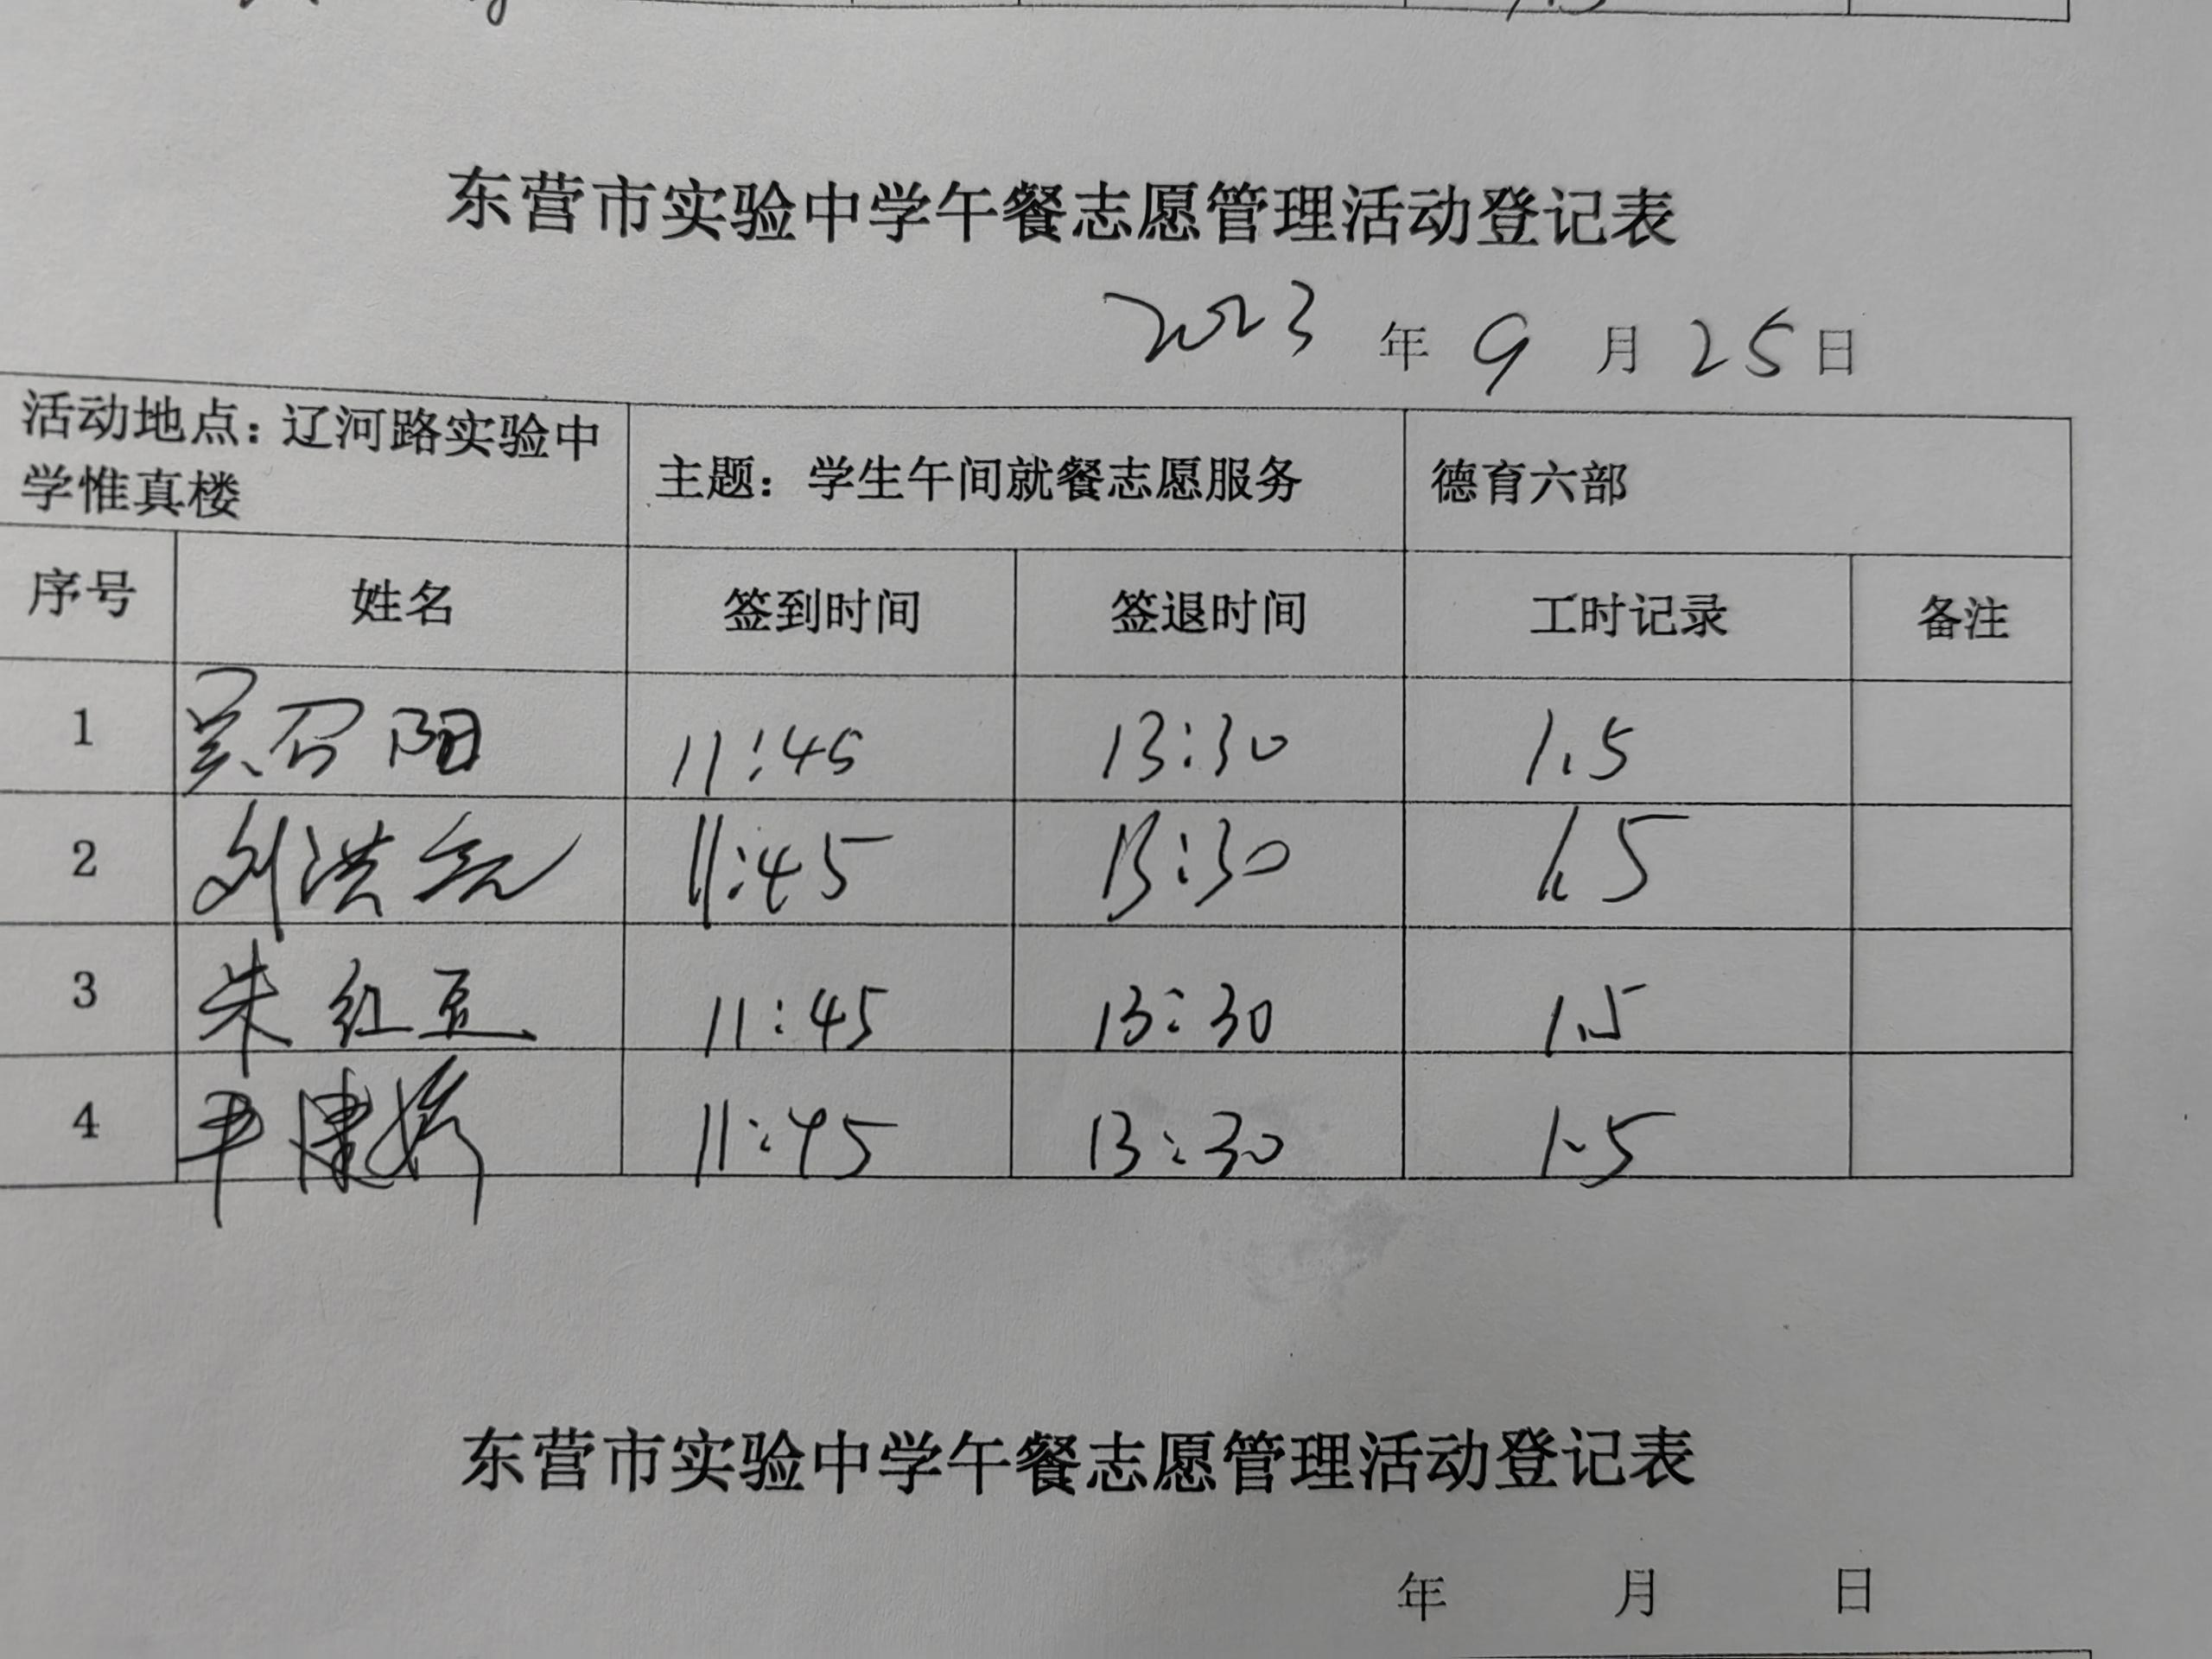 东营市实验中学午餐志愿管理活动登记表
2023 年 9 月 25 日
活动地点：辽河路实验中学惟真楼 主题：学生午间就餐志愿服务 德育六部
序号 姓名 签到时间 签退时间 工时记录 备注
1 吴召阳 11:45 13:30 1.5
2 刘洪 11:45 13:30 1.5
3 朱红豆 11:45 13:30 1.5
4 11:45 13:30 1.5
东营市实验中学午餐志愿管理活动登记表
年 月 日